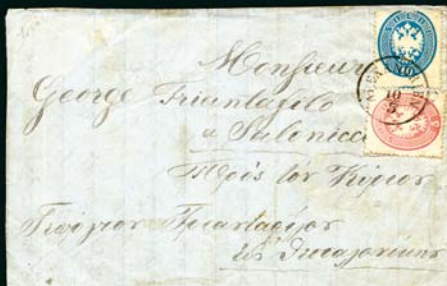 Monsieur
George Triantafilo
a Salonicco
Πρός τόν Κύριον
Γεώργιον Τριανταφίλου
εἰς Θεσσαλονίκην
10
5